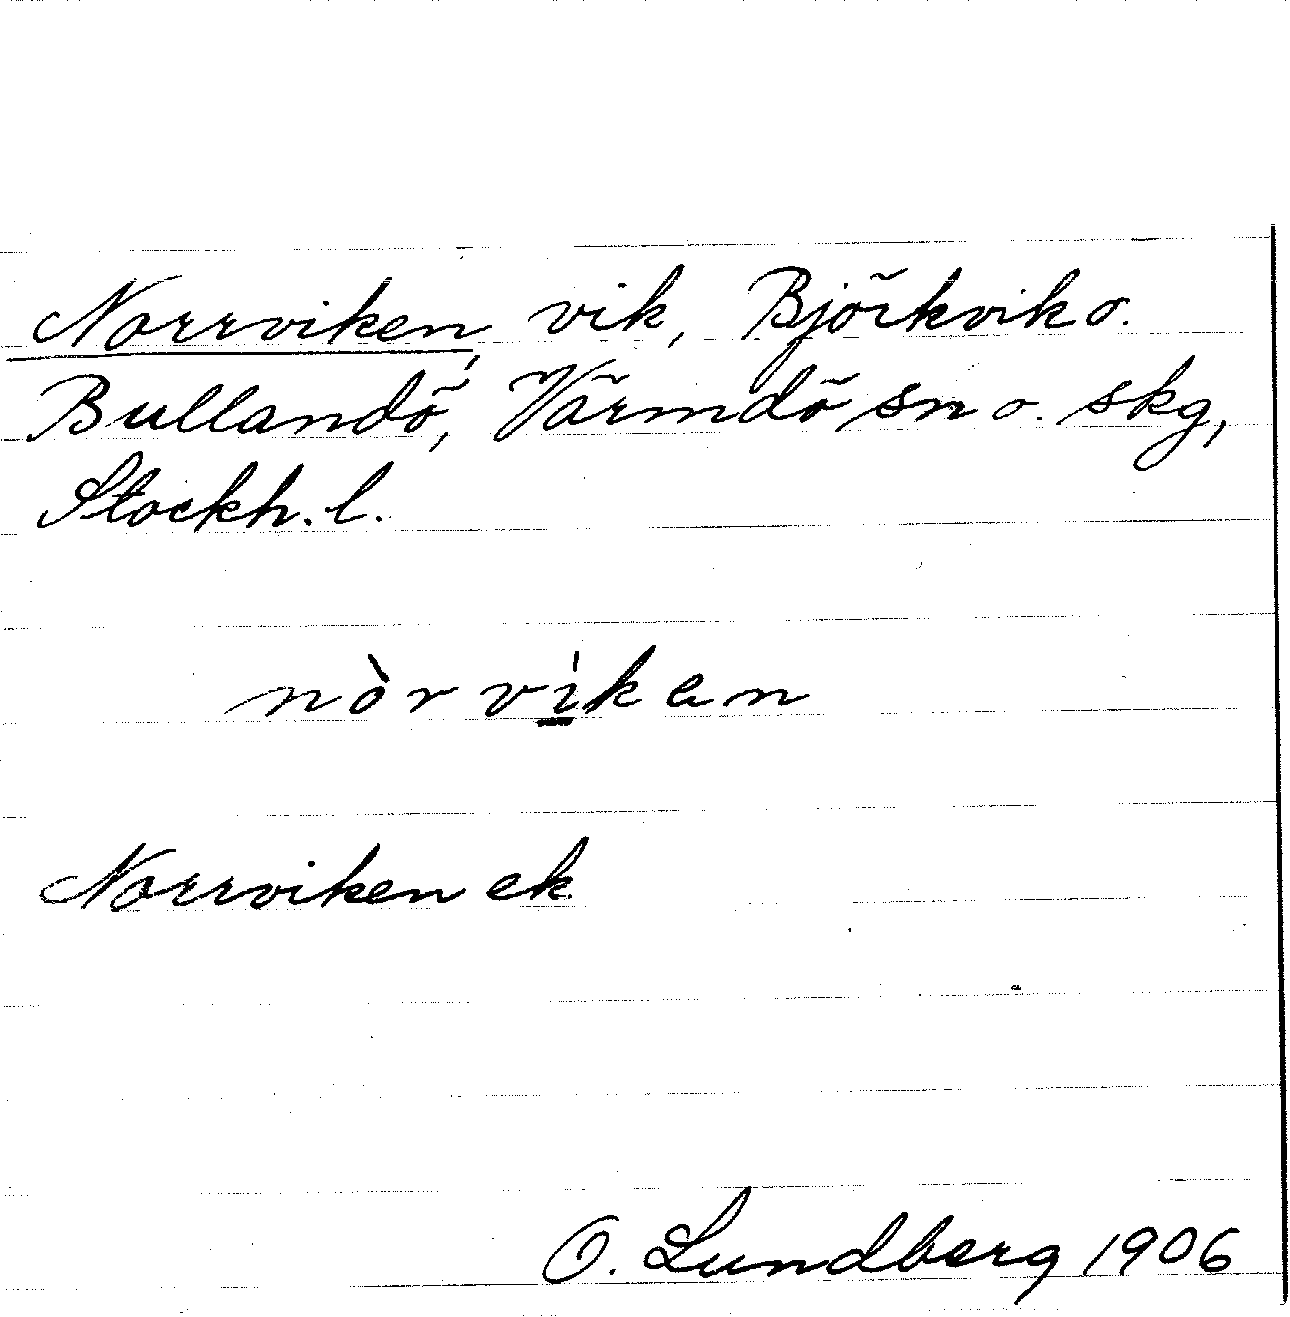 Norrviken, vik, Björkvik o.
Bullandö, Värmdö sn o. skg,
Stockh. l.
nòrvi̲̍kan
Norrviken ek.
O. Lundberg 1906